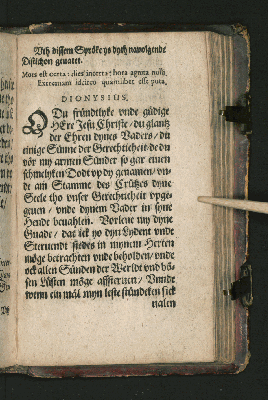 Vth dissem Spröke ys dyth nauolgende
Distichon gemaket.
Mors est certa: dies incerta: hora agnita nulli,
Extremam idcirco quamlibet esse puta.
DIONYSIUS.
O Du fründtlyke vnde güdige
HEre Jesu Christe / du glantz
der Ehren dynes Vaders / du
einige Sünne der Gerechticheit de den
vör my armen Sünder so gar einen
schmelyken Dodt vp dy genamen / vn-
de am Stamme des Crützes dyne
Seele tho vnser Gerechticheit vpge-
geuen / vnde dynem Vader in syne
Hende beuahlen. Vorlene my dyne
Gnade / dat ick yo dyn Lydent vnde
Steruendt stedes in mynem Herten
möge betrachten vnde beholden / vnde
ock allen Sünden der Werldt vnd bö-
sen Lüsten möge affsteruen / Vnnde
wenn ein mal myn leste stündeken sick
nalen